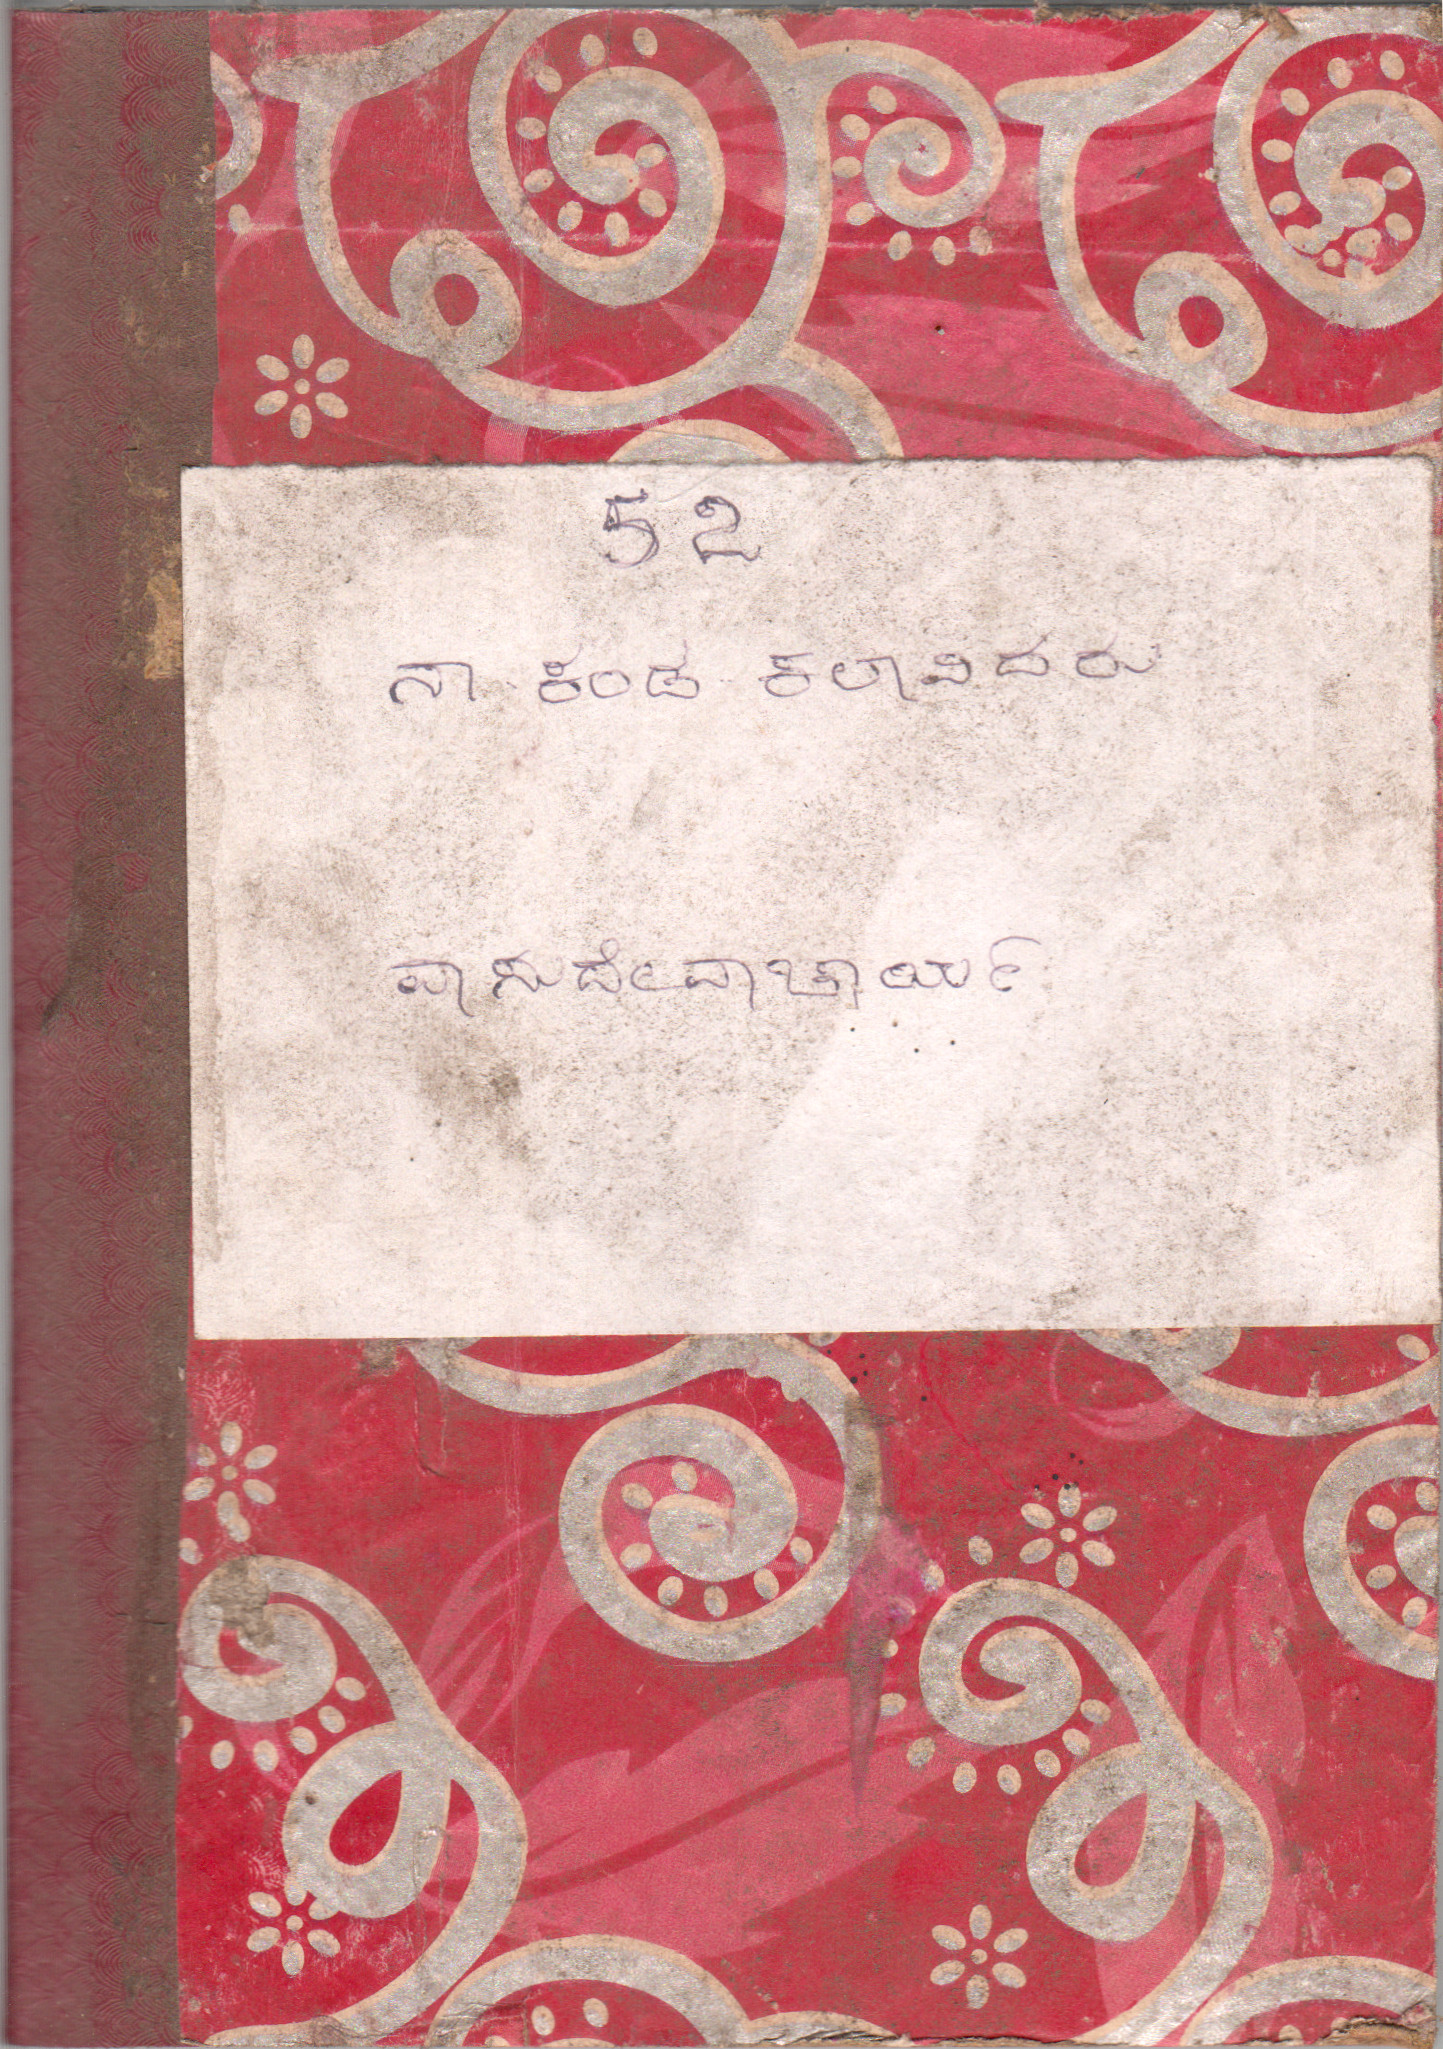 52
ನಾ ಕಂಡ ಕಲಾವಿದರು
ವಾಸುದೇವಾಚಾರ್ಯ